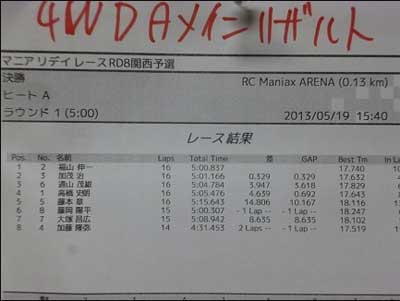 4WD Aメインリザルト
マニアリデイレースRD8関西予選
決勝 RC Maniax ARENA (0.13 km)
ヒート A
ラウンド 1 (5:00) 2013/05/19 15:40
レース結果
Pos. No. 名前 Laps Total Time 差 GAP Best Tm In La
1 2 福山 伸一 16 5:00.837 17.740 10
2 3 加茂 治 16 5:01.166 0.329 0.329 17.632 4
3 6 遠山 茂雄 16 5:04.784 3.947 3.618 17.829
4 1 高橋 宏明 16 5:05.476 4.639 0.692 17.643
5 5 藤本 章 16 5:15.643 14.806 10.167 18.116
6 8 藤岡 陽平 15 5:00.307 - 1 Lap -- - 1 Lap -- 18.247
7 7 大塚 昌広 15 5:08.942 8.635 8.635 18.102
8 4 加藤 隆弥 14 4:31.453 2 Laps -- - 1 Lap -- 17.519